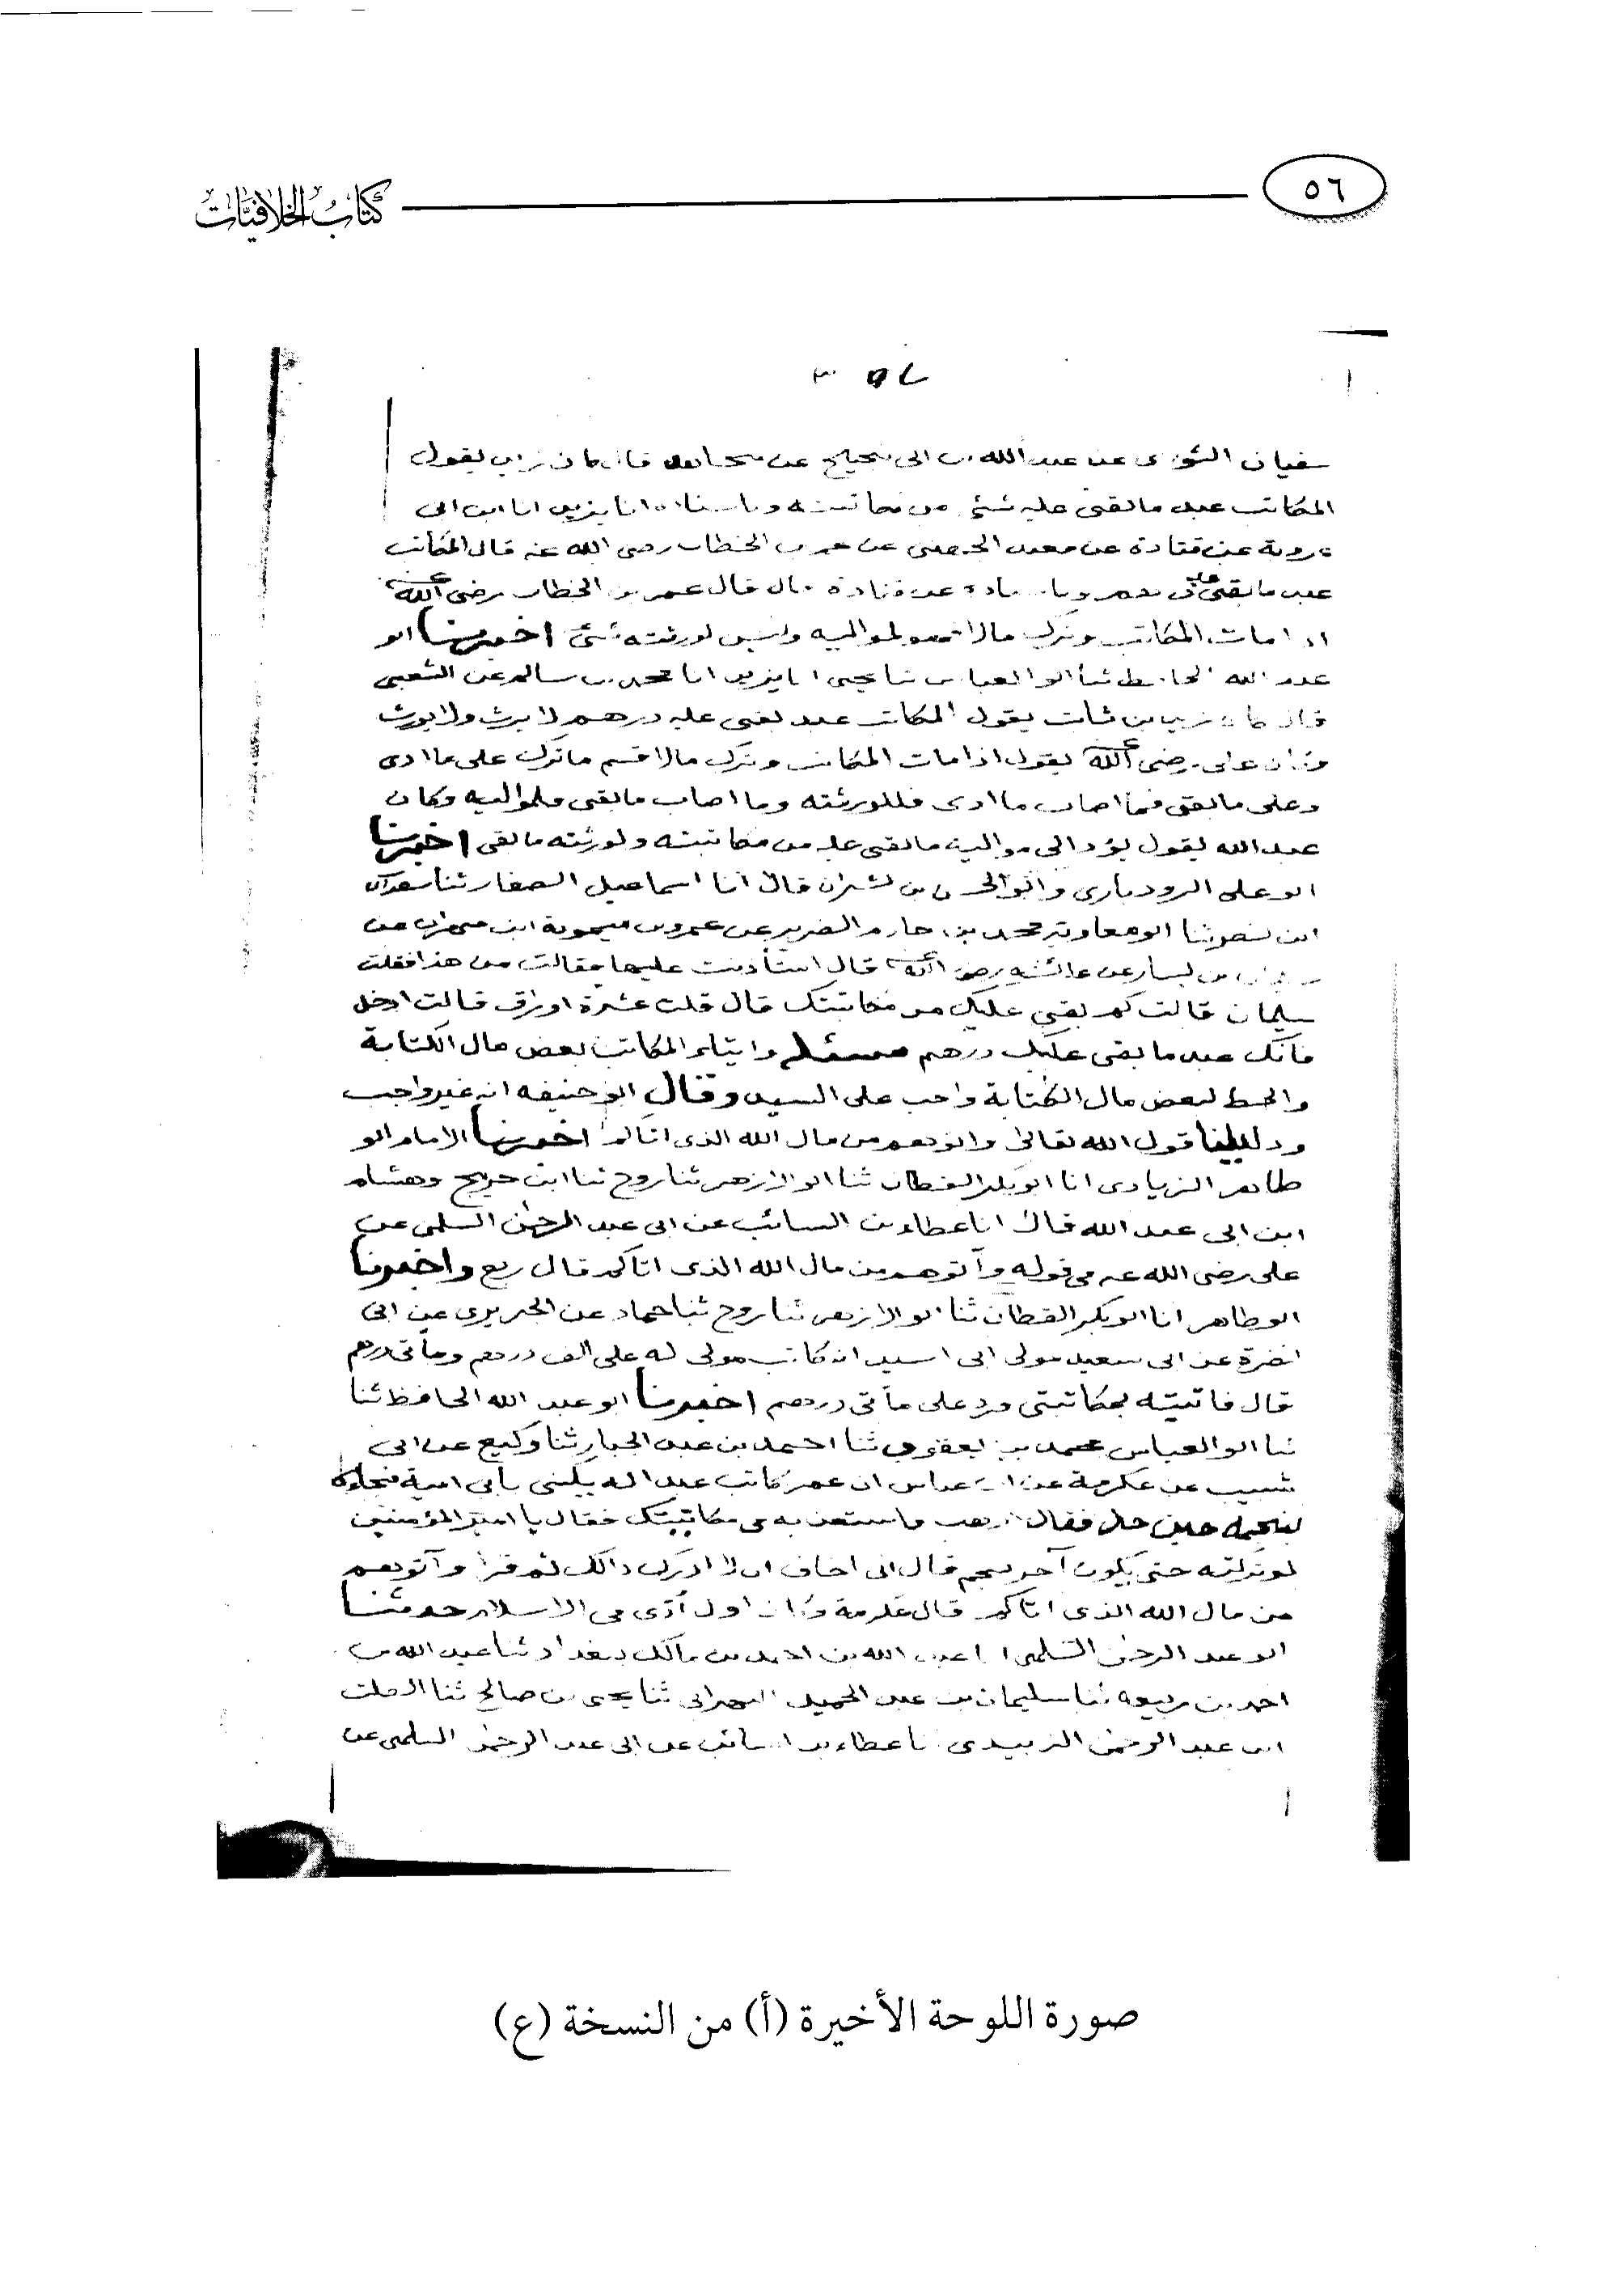 ٥٦
كتاب الخلافيات
سفيان الثوري عن عبد الله بن ابى نجيح عن مجاهد قال كان زيد يقول
المكاتب عبد ما بقى عليه شئ من مكاتبته وباسناده انا يزيد انا ابن ابى
عروبة عن قتادة عن معبد الجهنى عن عمر بن الخطاب رضى الله عنه قال المكاتب
عبد ما بقى عليه درهم وباسناده عن قتادة قال قال عمر بن الخطاب رضى الله عنه
اذا مات المكاتب وترك مالا فهو لمواليه وليس لورثته شئ اخبرنا ابو
عبد الله الحافظ ثنا ابو العباس ثنا يحيى انا يزيد انا محمد بن سالم عن الشعبى
قال كان زيد بن ثابت يقول المكاتب عبد بقى عليه درهم لا يرث ولا يورث
وكان على رضى الله عنه يقول اذا مات المكاتب وترك مالا قسم ما ترك على ما ادى
وعلى ما بقى فما اصاب ما ادى فللورثته وما اصاب ما بقى فلمواليه وكان
عبد الله يقول يؤد الى مواليه ما بقى عليه من مكاتبته ولورثته ما بقى اخبرنا
ابو على الروذبارى وابو الحسين بن بشران قالا انا اسماعيل الصفار ثنا سعدان
ابن نصر ثنا ابو معاوية محمد بن حازم الضرير عن عمرو بن ميمونة ابن مهران عن
سليمان بن يسار عن عائشة رضى الله عنها قال استأذنت عليها فقالت من هذا فقلت
سليمان قالت كم بقى عليك من مكاتبتك قال قلت عشرة اواق قالت ادخل
فانك عبد ما بقى عليك درهم مسئله وايتاء المكاتب بعض مال الكتابة
والحط لبعض مال الكتابة واجب على السيد وقال ابو حنيفه انه غير واجب
ودليلنا قول الله تعالى واتوهم من مال الله الذى اتاكم اخبرنا الامام ابو
طاهر الزيادى انا ابو بكر القطان ثنا ابو الازهر ثنا روح ثنا ابن جريج وهشام
ابن ابى عبد الله قالا انا عطاء بن السائب عن ابى عبد الرحمن السلمى عن
على رضى الله عنه فى قوله وآتوهم من مال الله الذى اتاكم قال ربع واخبرنا
ابو طاهر انا ابو بكر القطان ثنا ابو الازهر ثنا روح ثنا حماد عن الجريرى عن ابى
نضرة عن ابى سعيد مولى ابى اسيد انه كاتب مولى له على الف درهم ومأتى درهم
قال فاتيته بمكاتبتى فرد على مأتى درهم اخبرنا ابو عبد الله الحافظ ثنا
ثنا ابو العباس محمد بن يعقوب ثنا احمد بن عبد الجبار ثنا وكيع عن ابى
شبيب عن عكرمة عن ابن عباس ان عمر كاتب عبدا له يكنى بابى امية فجاءه
بنجمه حين حل فقال اذهب فاستعن به فى مكاتبتك فقال يا امير المؤمنين
لو تركته حتى يكون آخر نجم قال انى اخاف ان لا ادرك ذالك ثم قرأ وآتوهم
من مال الله الذى اتاكم قال عكرمة وكان اول أدى فى الاسلام حدثنا
ابو عبد الرحمن السلمى انا عبد الله بن احمد بن مالك ببغداد ثنا عبد الله بن
احمد بن ربيعه ثنا سليمان بن عبد الحميد البهرانى ثنا يحيى بن صالح ثنا الصلت
ابن عبد الرحمن الزبيدى ثنا عطاء بن السائب عن ابى عبد الرحمن السلمى عن
صورة اللوحة الأخيرة (أ) من النسخة (ع)